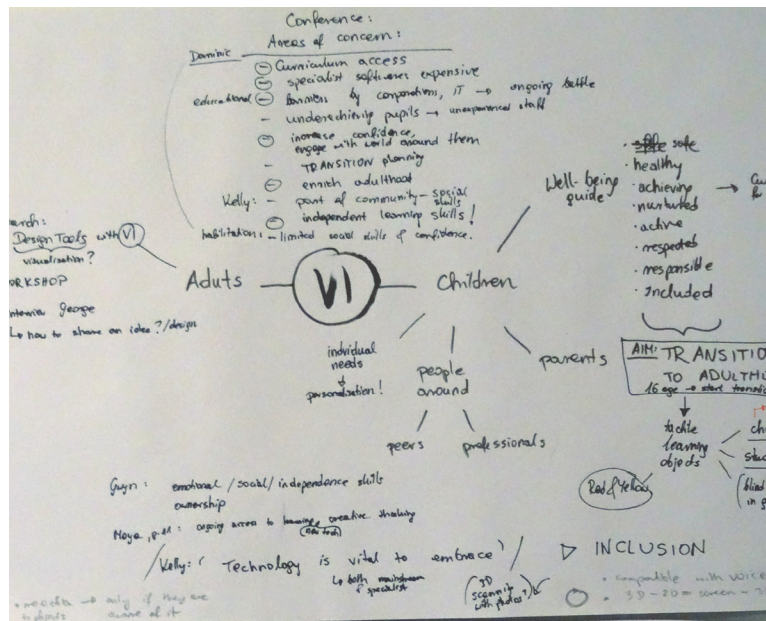 Conference:
Areas of concern:
Dominic
Curriculum access
specialist softwares expensive
educational
Barriers by corporations, IT → ongoing battle
- underachieving pupils → unexperienced staff
increase confidence,
engage with world around them
- TRANSITION planning
enrich adulthood
Kelly: - part of community - social skills
independent learning skills!
habilitation: - limited social skills & confidence.
Design Tools with VI
visualisation?
George
↳ how to share an idea?/design
Aduts
VI
Children
Well-being
guide
· safe
· healthy
· achieving
· nurtured
· active
· respected
· responsible
· Included
individual
needs
personalisation!
people
around
peers
professionals
parents
AIM: TRANSITIO
TO ADULTH
16 age → start
tactile
learning
objects
Red & Yellow
Gwyn: emotional / social / independence skills
ownership
ongoing access to creative thinking
new tech
/Kelly: ( Technology is vital to embrace ) /
↳ both mainstream
& specialist
3D
scanning
with photos?
▷ INCLUSION
· compatible with voice
· 3D - 2D = screen -
→ only if they are
aware of it